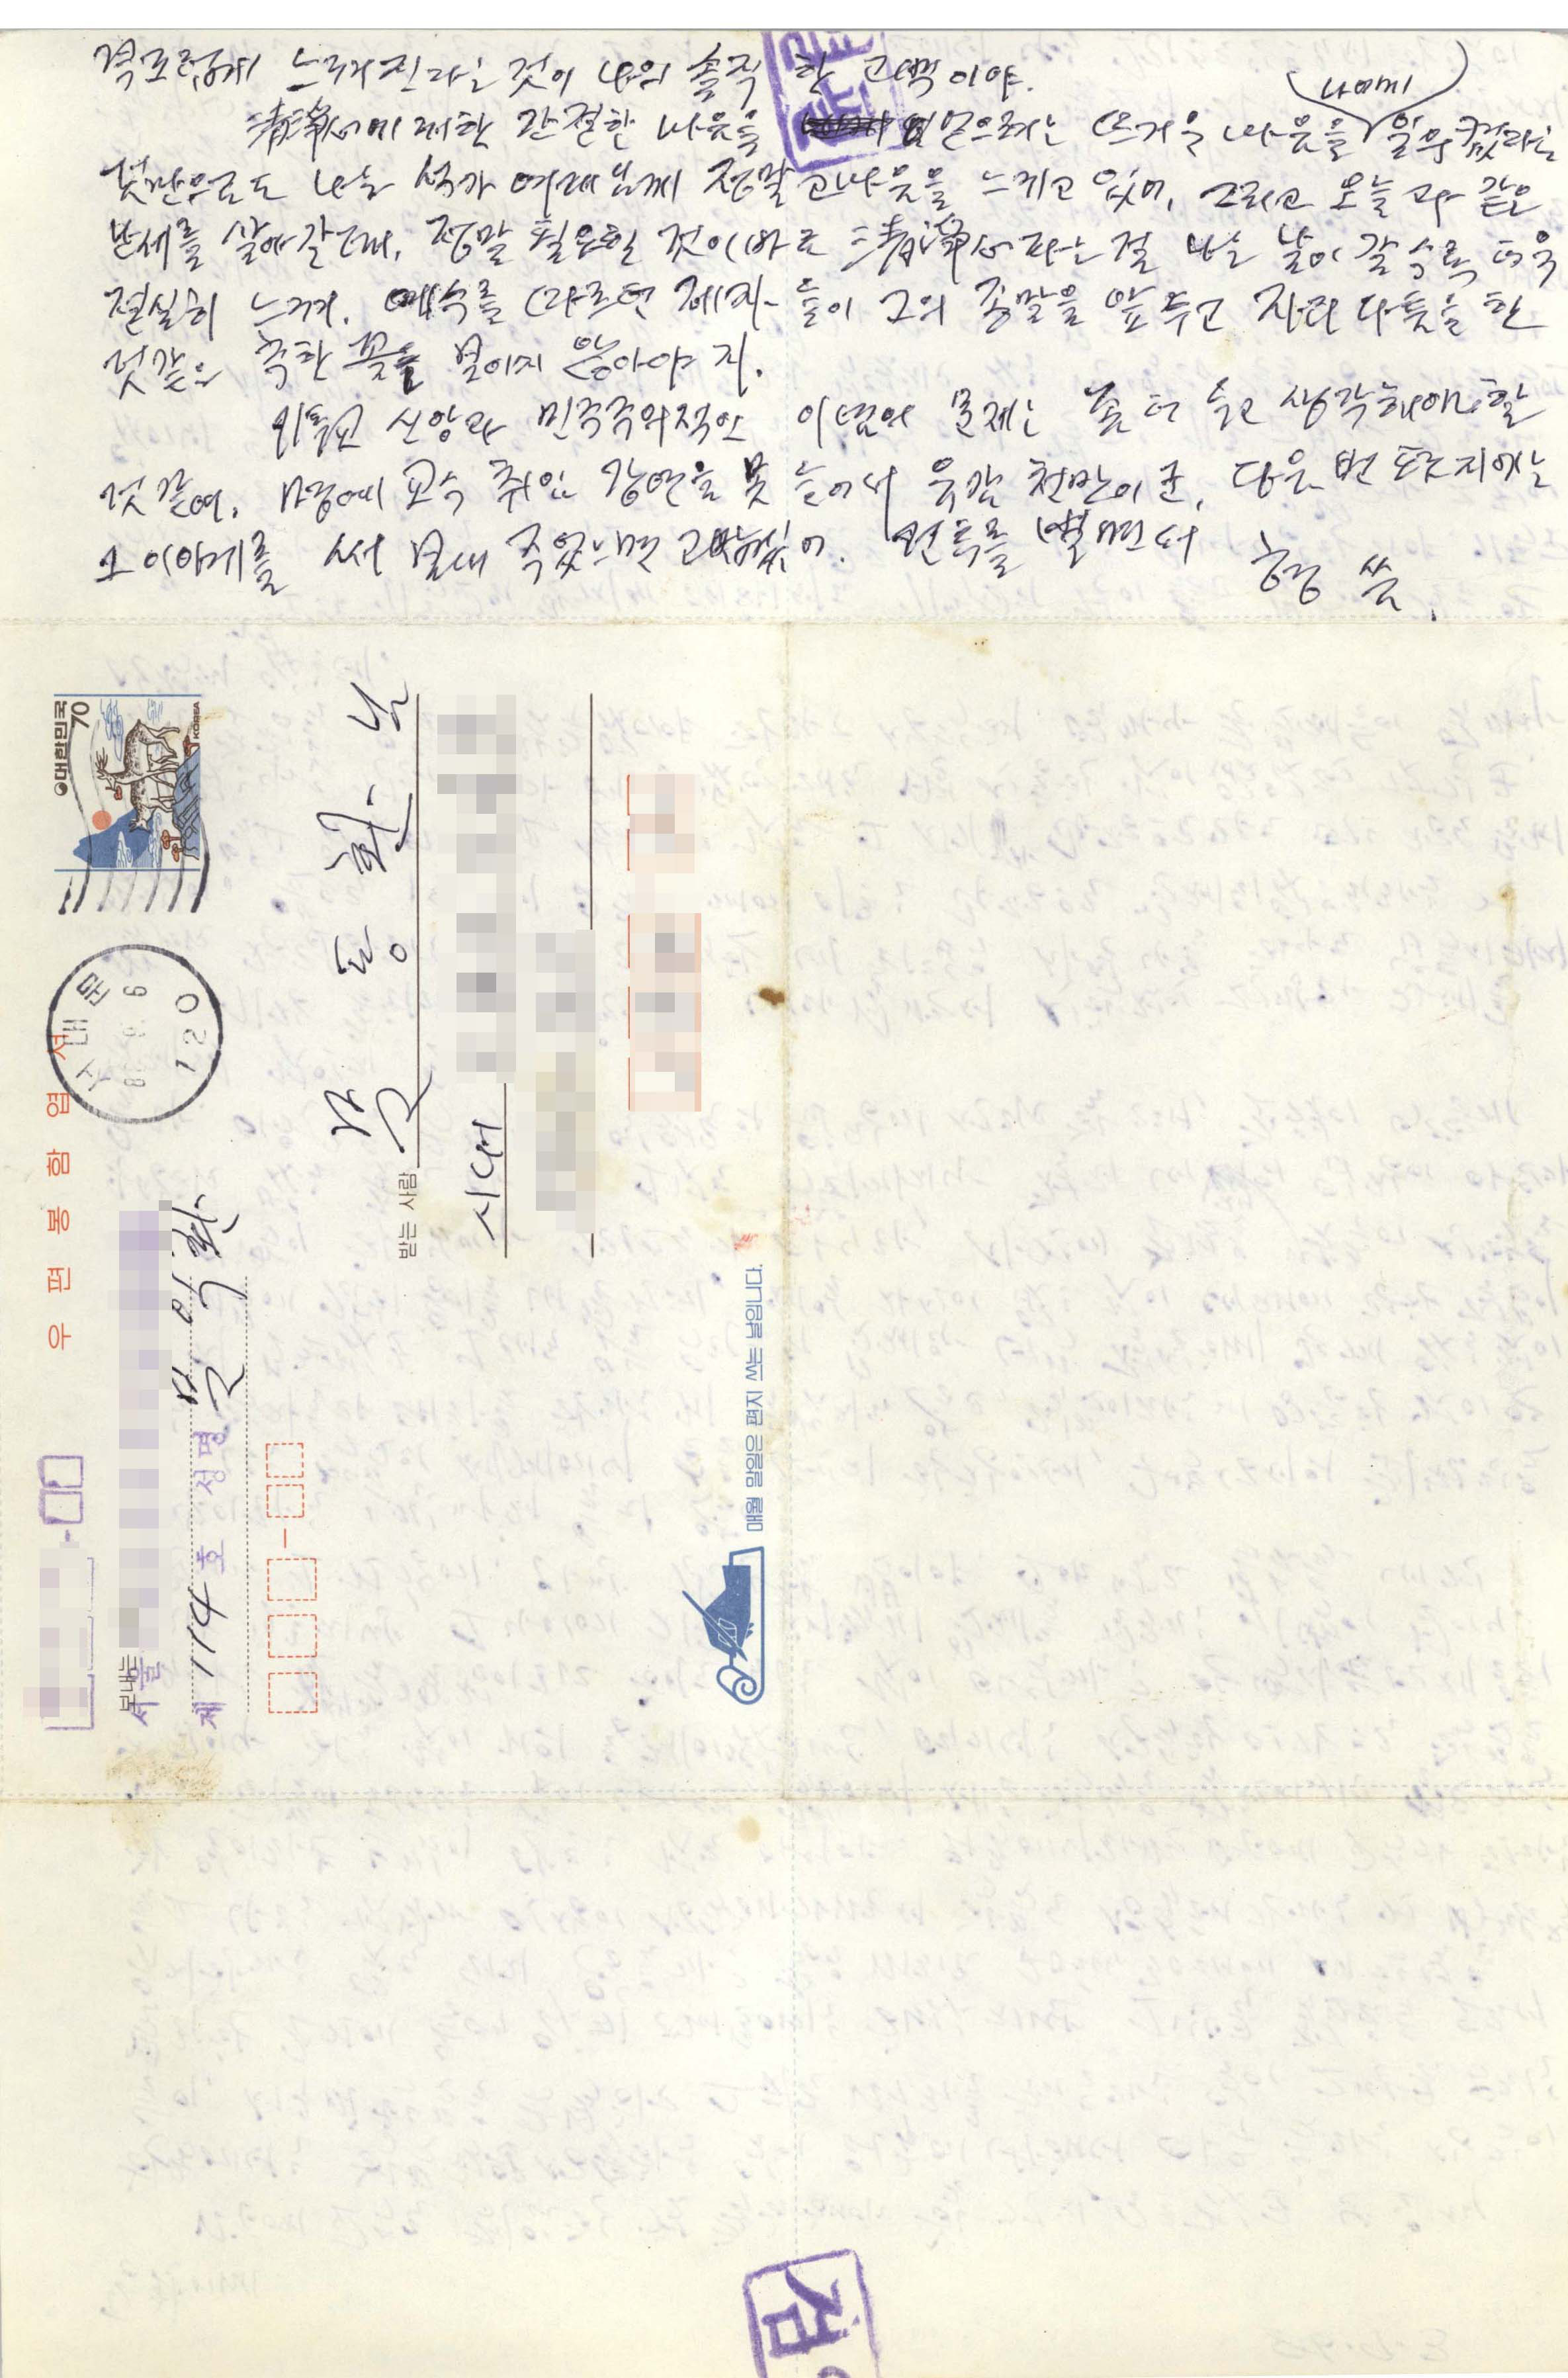 스럽게 느껴진다는 것이 나의 솔직한 고백이야.
에 대한 간절한 마음을 믿음으로는 뜨거운 마음을 나에게 일으켰다는
것만으로도 나는 성가 여래님께 정말 고마움을 느끼고 있어. 그리고 오늘과 같은
난세를 살아갈 때, 정말 필요한 것이 바로 라는 걸 나는 날이 갈수록 더욱
절실히 느껴. 예수를 따르던 제자들이 그의 종말을 앞두고 자리 다툼을 한
것 같은 추한 꼴을 보이지 않아야지.
기독교 신앙과 민주주의적인 이념의 문제는 좀 더 두고 생각해야 할
것 같애. 교수 취임 강연을 못 들어서 유감 천만이군. 다음 번 편지에는
그 이야기를 써 보내 주었으면 고맙겠어. 건투를 빌면서 형 씀.
대한민국 70 KOREA
서대문
120
우편봉함엽서
보내는
서울
제 114 호 성명 문익환
받는 사람 문동환 님
시내
매월 말일은 편지 쓰는 날입니다.
검